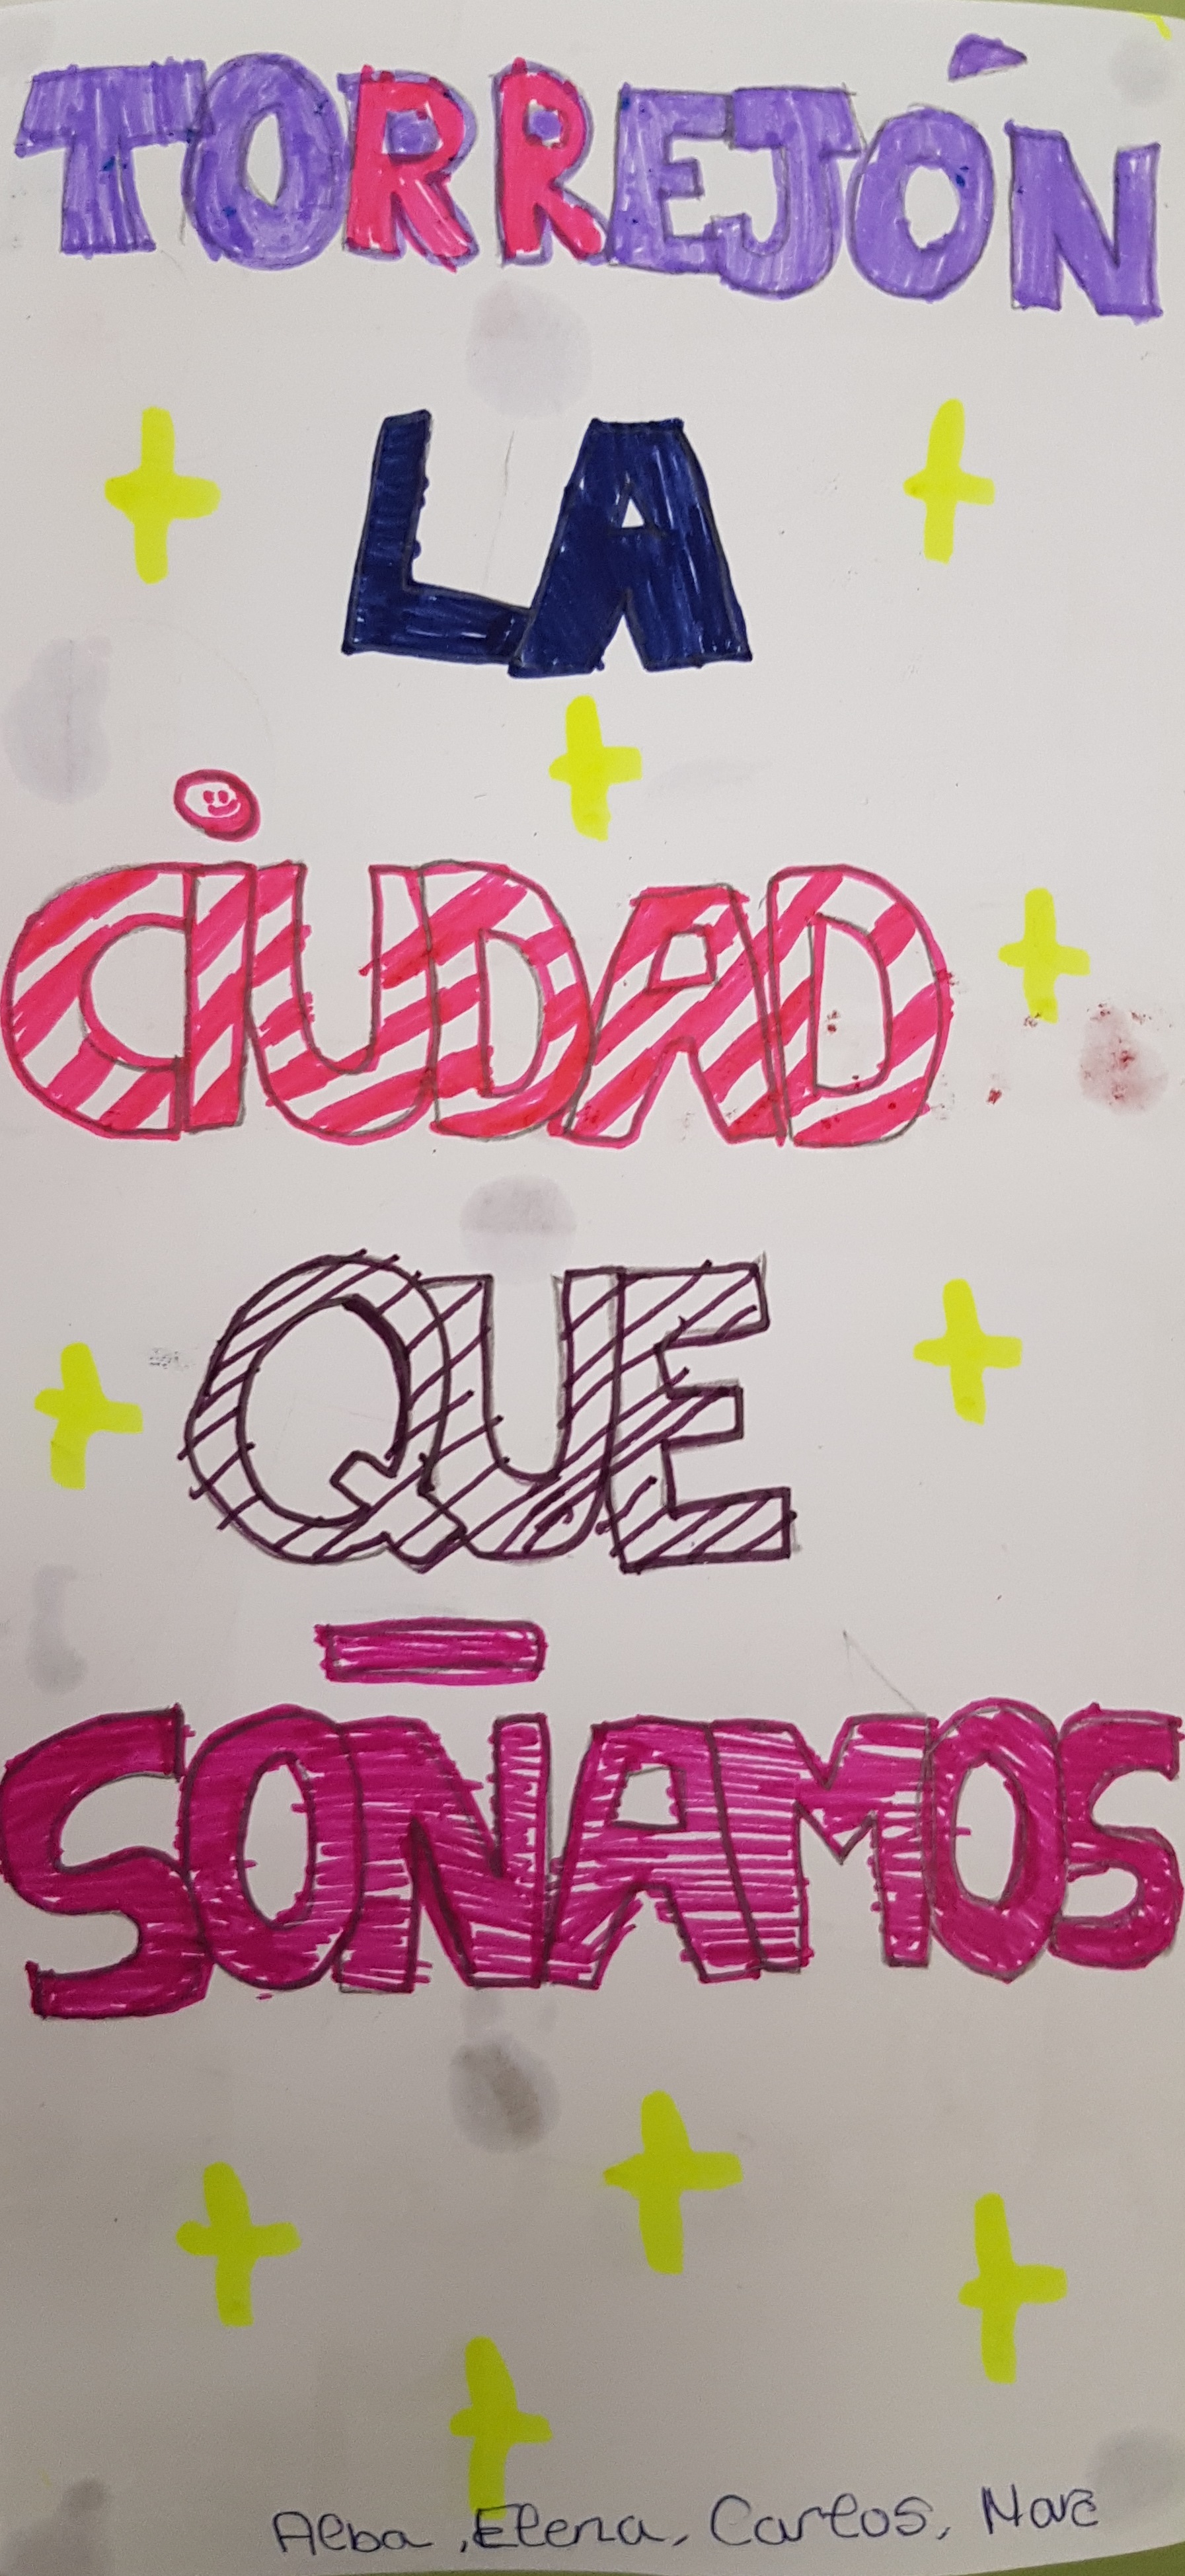 TORREJÓN
LA
CiUDAD
QUE
SOÑAMOS
Alba, Elena, Carlos,